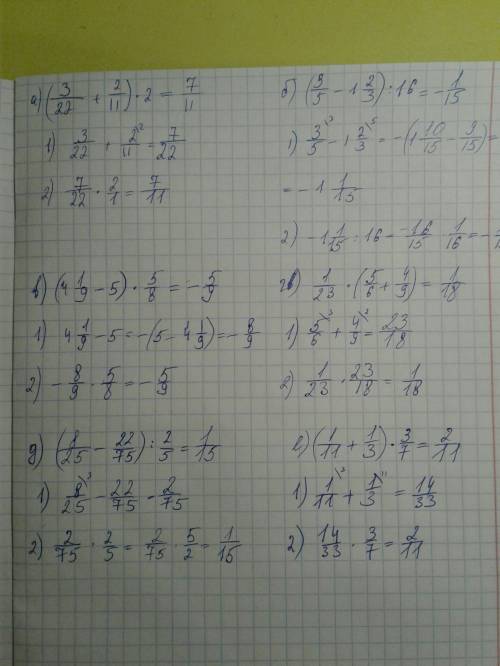 а) (3/22 + 2/11) · 2 = 7/11
1) 3/22 + 2/11 \2 = 7/22
2) 7/22 · 2/1 = 7/11
б) (3/5 - 1 2/3) · 16 = - 1/15
1) 3/5 \3 - 1 2/3 \5 = -(1 10/15 - 9/15) =
= - 1 1/15
2) - 1 1/15 : 16 = -16/15 · 1/16 = -
в) (4 1/9 - 5) · 5/8 = - 5/9
1) 4 1/9 - 5 = -(5 - 4 1/9) = - 8/9
2) - 8/9 · 5/8 = - 5/9
г) 1/23 · (5/6 + 4/9) = 1/18
1) 5/6 \3 + 4/9 \2 = 23/18
2) 1/23 · 23/18 = 1/18
д) (8/25 - 22/75) : 2/5 = 1/15
1) 8/25 \3 - 22/75 = 2/75
2) 2/75 · 2/5 = 2/75 · 5/2 = 1/15
е) (1/11 + 1/3) · 3/7 = 2/11
1) 1/11 \3 + 1/3 \11 = 14/33
2) 14/33 · 3/7 = 2/11